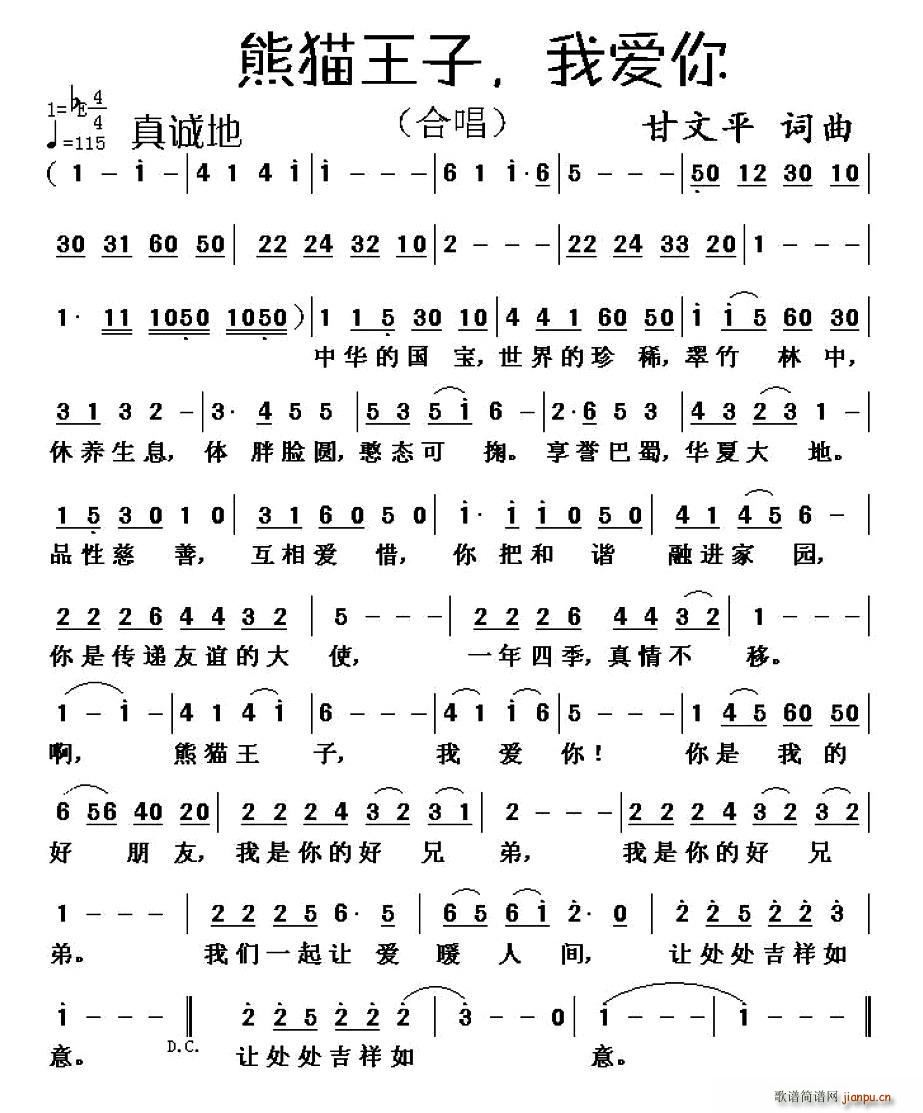 熊猫王子，我爱你
1=♭E 4/4
♩=115 真诚地 （合唱） 甘文平 词曲
( 1 - i - | 4 1 4 i | i - - - | 6 1 i· 6 | 5 - - - | 50 12 30 10 |
30 31 60 50 | 22 24 32 10 | 2 - - - | 22 24 33 20 | 1 - - - |
1· 11 1050 1050 ) | 1 1 5 30 10 | 4 4 1 60 50 | i i 5 60 30 |
中华的国宝，世界的珍稀，翠竹林中，
3 1 3 2 - | 3· 4 5 5 | 5 3 5 i 6 - | 2· 6 5 3 | 4 3 2 3 1 - |
休养生息，体胖脸圆，憨态可掬。享誉巴蜀，华夏大地。
1 5 3 0 1 0 | 3 1 6 0 5 0 | i· i i 0 5 0 | 4 1 4 5 6 - |
品性慈善，互相爱惜，你把和谐融进家园，
2 2 2 6 4 4 3 2 | 5 - - - | 2 2 2 6 4 4 3 2 | 1 - - - |
你是传递友谊的大使，一年四季，真情不移。
1 - i - | 4 1 4 i | 6 - - - | 4 1 i 6 | 5 - - - | 1 4 5 60 50 |
啊，熊猫王子，我爱你！你是我的
6 56 40 20 | 2 2 2 4 3 2 3 1 | 2 - - - | 2 2 2 4 3 2 3 2 |
好朋友，我是你的好兄弟，我是你的好兄
1 - - - | 2 2 2 5 6· 5 | 6 5 6 i 2· 0 | 2 2 5 2 2 3 |
弟。我们一起让爱暖人间，让处处吉祥如
i - - - ‖ 2 2 5 2 2 2 | 3 - - 0 | i - - - | i - - - ‖
意。 D.C. 让处处吉祥如意。
歌谱简谱网 jianpu.cn